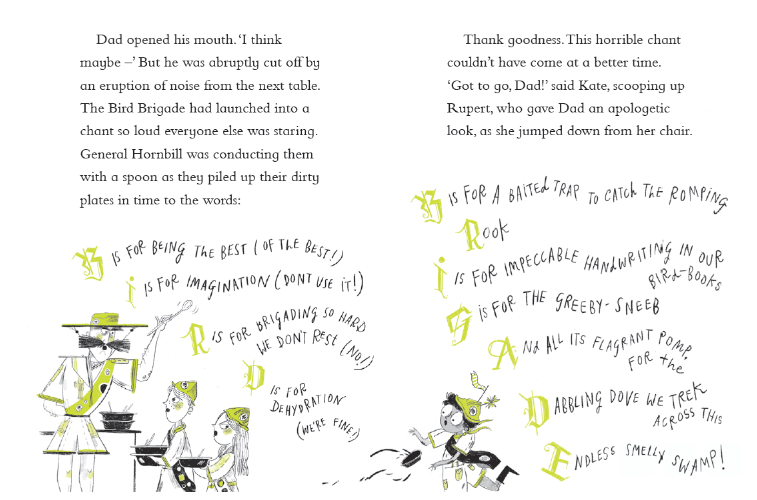 Dad opened his mouth. ‘I think
maybe –’ But he was abruptly cut off by
an eruption of noise from the next table.
The Bird Brigade had launched into a
chant so loud everyone else was staring.
General Hornbill was conducting them
with a spoon as they piled up their dirty
plates in time to the words:
B IS FOR BEING THE BEST (OF THE BEST!)
I IS FOR IMAGINATION (DONT USE IT!)
R IS FOR BRIGADING SO HARD
WE DON'T REST (NO!)
D IS FOR
DEHYDRATION
(WE'RE FINE!)
Thank goodness. This horrible chant
couldn’t have come at a better time.
‘Got to go, Dad!’ said Kate, scooping up
Rupert, who gave Dad an apologetic
look, as she jumped down from her chair.
B IS FOR A BAITED TRAP TO CATCH THE ROMPING
ROOK
I IS FOR IMPECCABLE HANDWRITING IN OUR
BIRD-BOOKS
S IS FOR THE GREEBY-SNEEB
AND ALL ITS FLAGRANT POMP,
FOR the
DABBLING DOVE WE TREK
ACROSS THIS
ENDLESS SMELLY SWAMP!